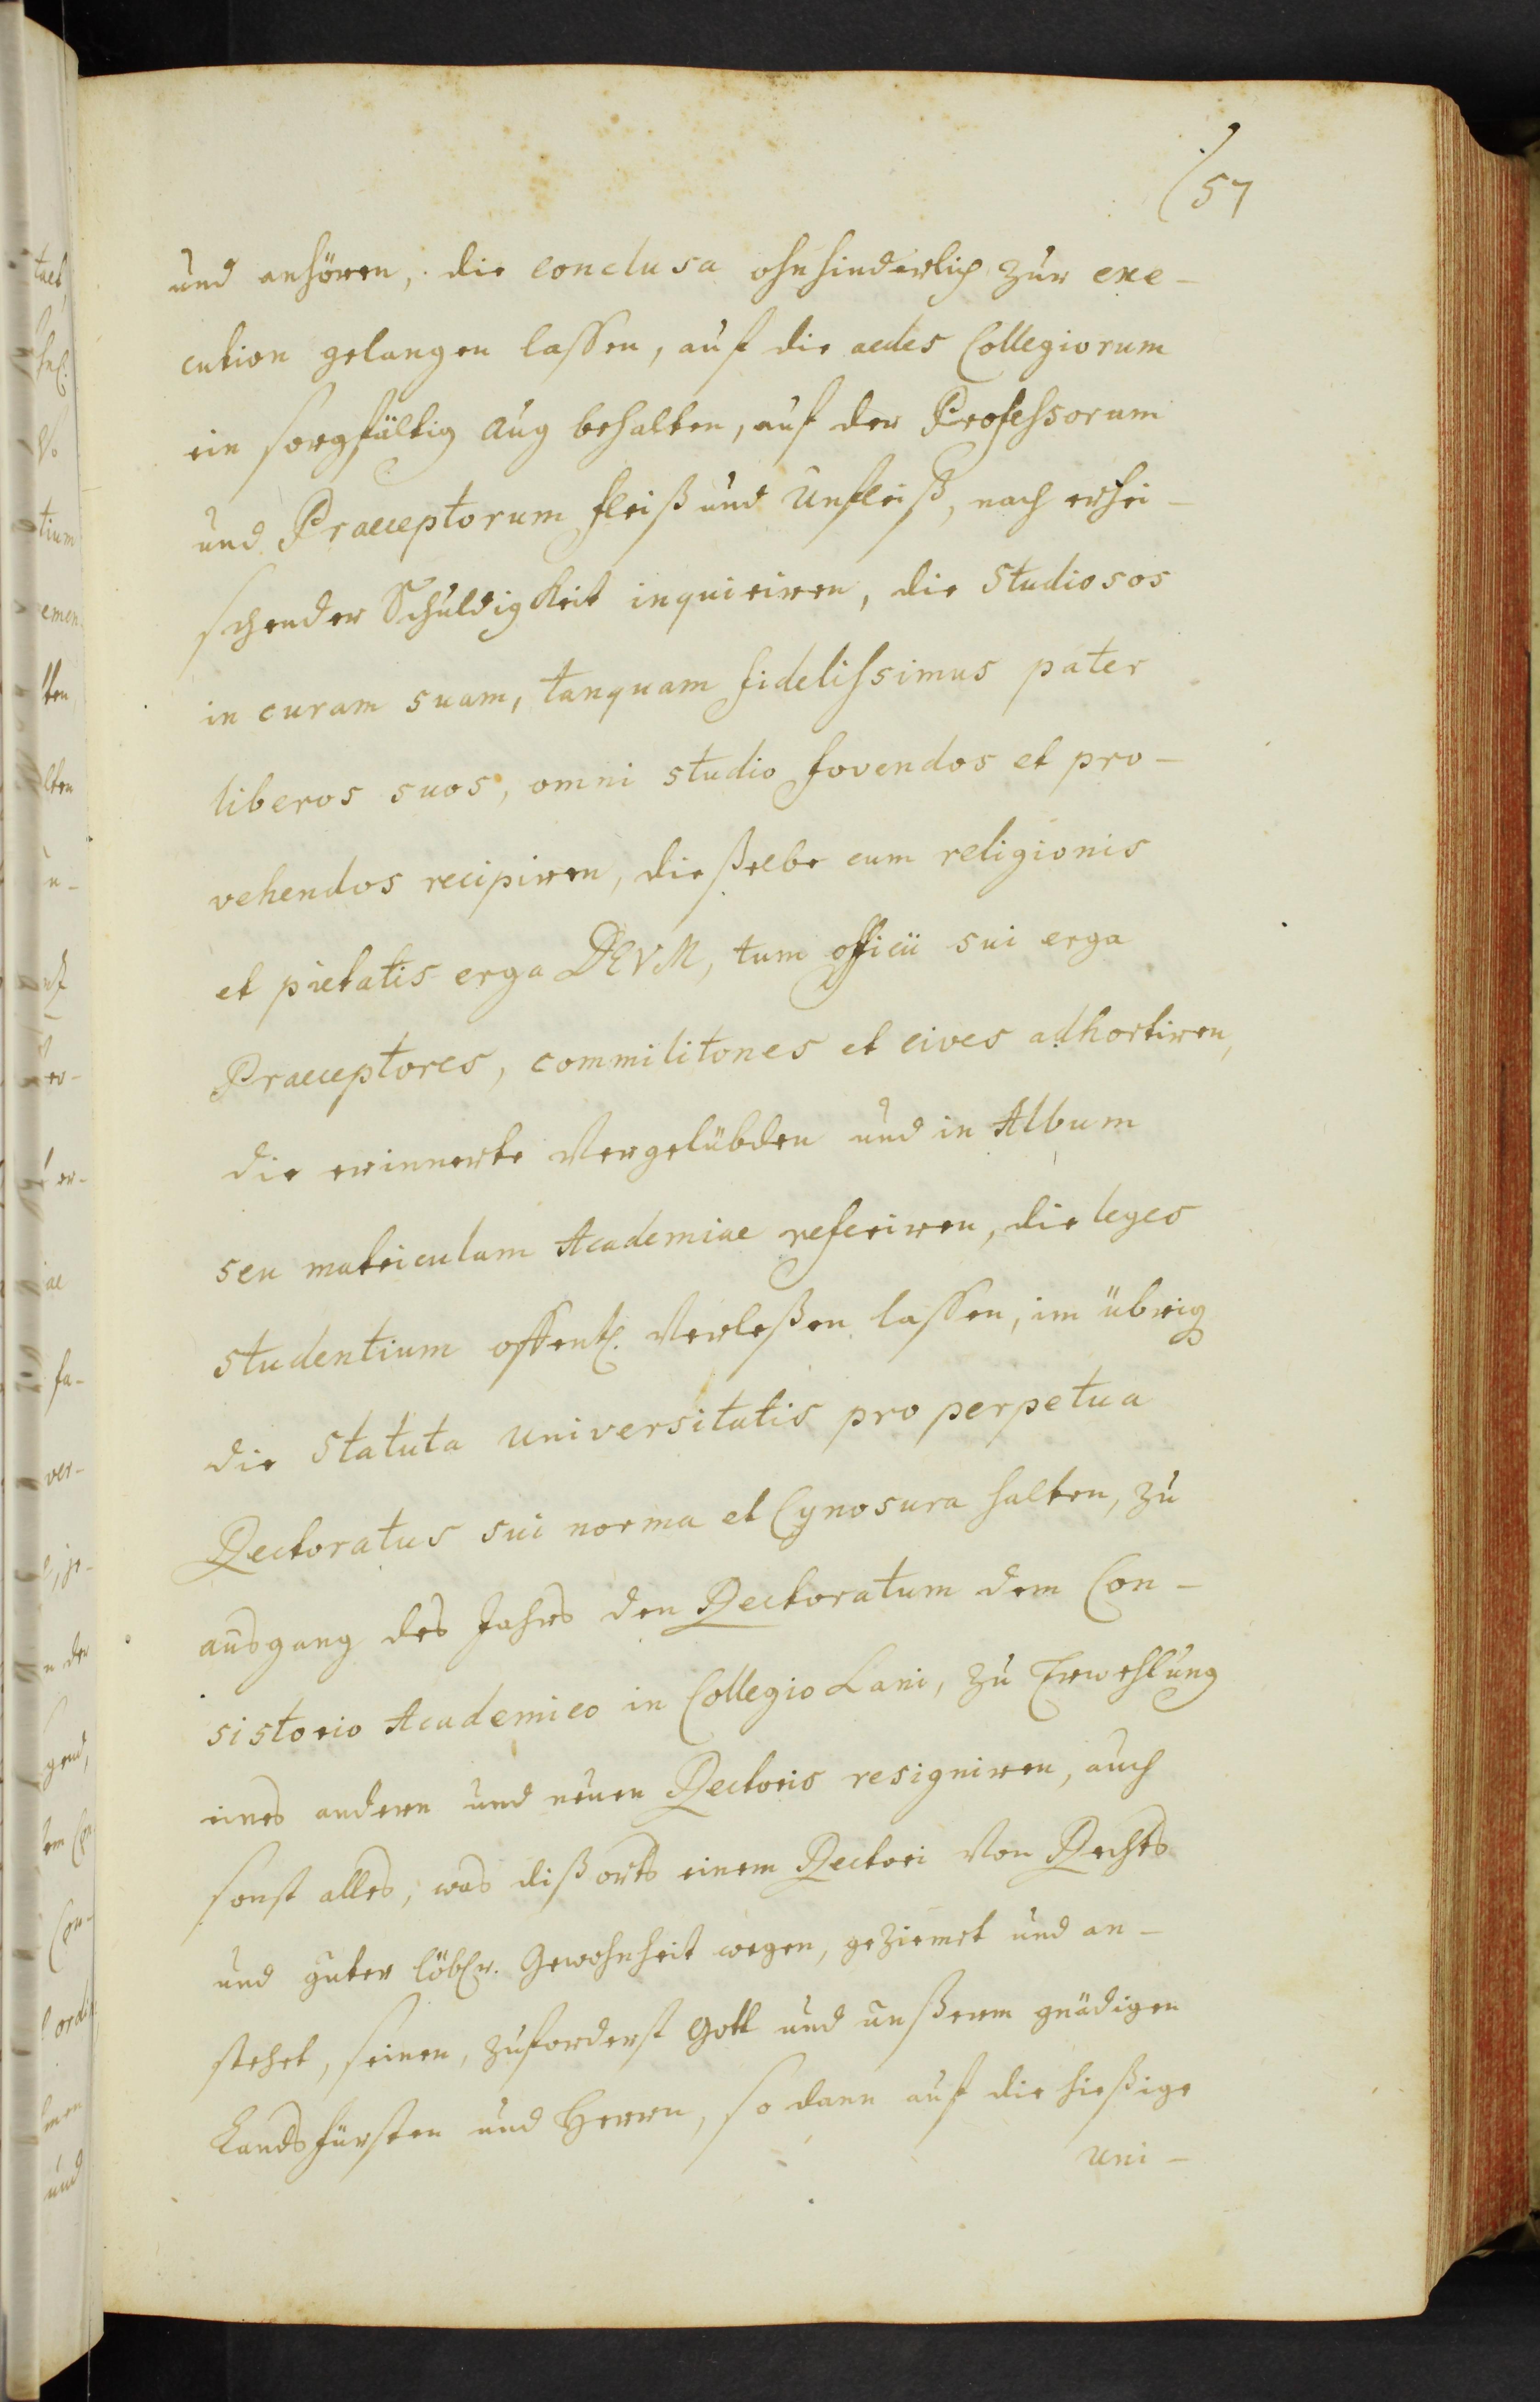 57
und anhören, die conclusa ohnhinderlich zur exe-
cution gelangen lassen, auf die aedes Collegiorum
ein sorgfältig Aug behalten, auf der Professorum
und Praeceptorum fleiß und Unfleiß, nach erhei-
schender Schuldigkeit inquiriren, die Studiosos
in curam suam, tanquam fidelissimus pater
liberos suos, omni studio fovendos et pro-
vehendos recipiren, dießelbe cum religionis
et pietatis erga DEVM, tum officii sui erga
Praeceptores, commilitones et cives adhortiren,
die erinnerte Vergelübden und in Album
seu matriculam Academiae referiren, die leges
studentium offentl. Verleßen lassen, im übrig
die Statuta universitatis pro perpetua
Rectoratus sui norma et Cynosura halten, zu
ausgang des Jahrs den Rectoratum dem Con-
sistorio Academico in Collegio Lani, zu Erwehlung
eines andern und neuen Rectoris resigniren, auch
sonst alles, was dißorts einem Rectori von Rechts
und guter löblr. Gewohnheit wegen, geziemet und an-
stehet, seinen, zuforderst Gott und unßerem gnädigen
Landsfürsten und Herrn, so dann auf die hießige
Uni-